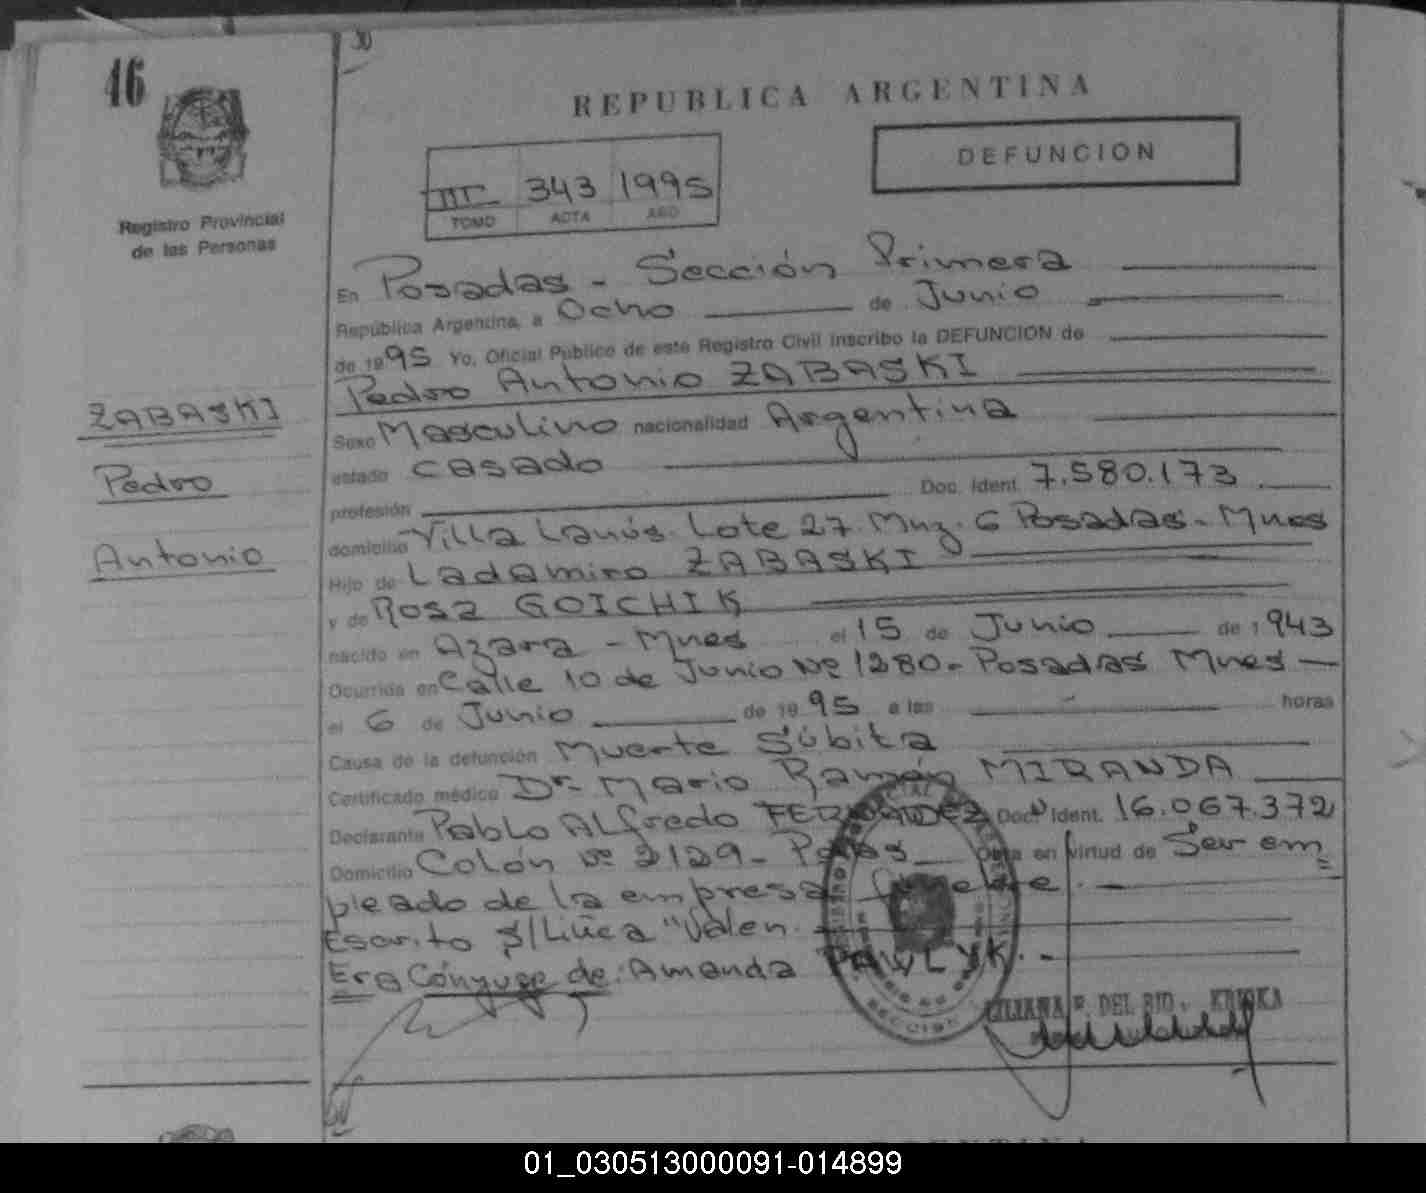 46
REPUBLICA ARGENTINA
DEFUNCION
III 343 1995
TOMO ACTA AÑO
Registro Provincial
de las Personas
ZABASKI
Pedro
Antonio
En Posadas - Sección Primera
República Argentina, a Ocho de Junio
de 1995 Yo, Oficial Público de este Registro Civil inscribo la DEFUNCION de
Pedro Antonio ZABASKI
Sexo Masculino nacionalidad Argentina
estado casado
profesión Doc. Ident. 7.580.173
domicilio Villa Lanús. Lote 27. Mnz. 6 Posadas - Mnes
Hijo de Ladamiro ZABASKI
y de Rosa GOICHIK
nacido en Azara - Mnes el 15 de Junio de 1943
Ocurrida en Calle 10 de Junio Nº 1280 - Posadas Mnes
el 6 de Junio de 1995 a las horas
Causa de la defunción Muerte Súbita
Certificado médico Dr. Mario Ramón MIRANDA
Declarante Pablo Alfredo FERNANDEZ Doc. Ident. 16.067.372
Domicilio Colón Nº 2129 - Pdas Obra en virtud de Ser em
pleado de la empresa fúnebre.
Escrito s/Línea "Valen.
Era Cónyuge de: Amanda PAWLYK.-
LILIANA F. DEL RIO. KRISKA
SECCION
01_030513000091-014899